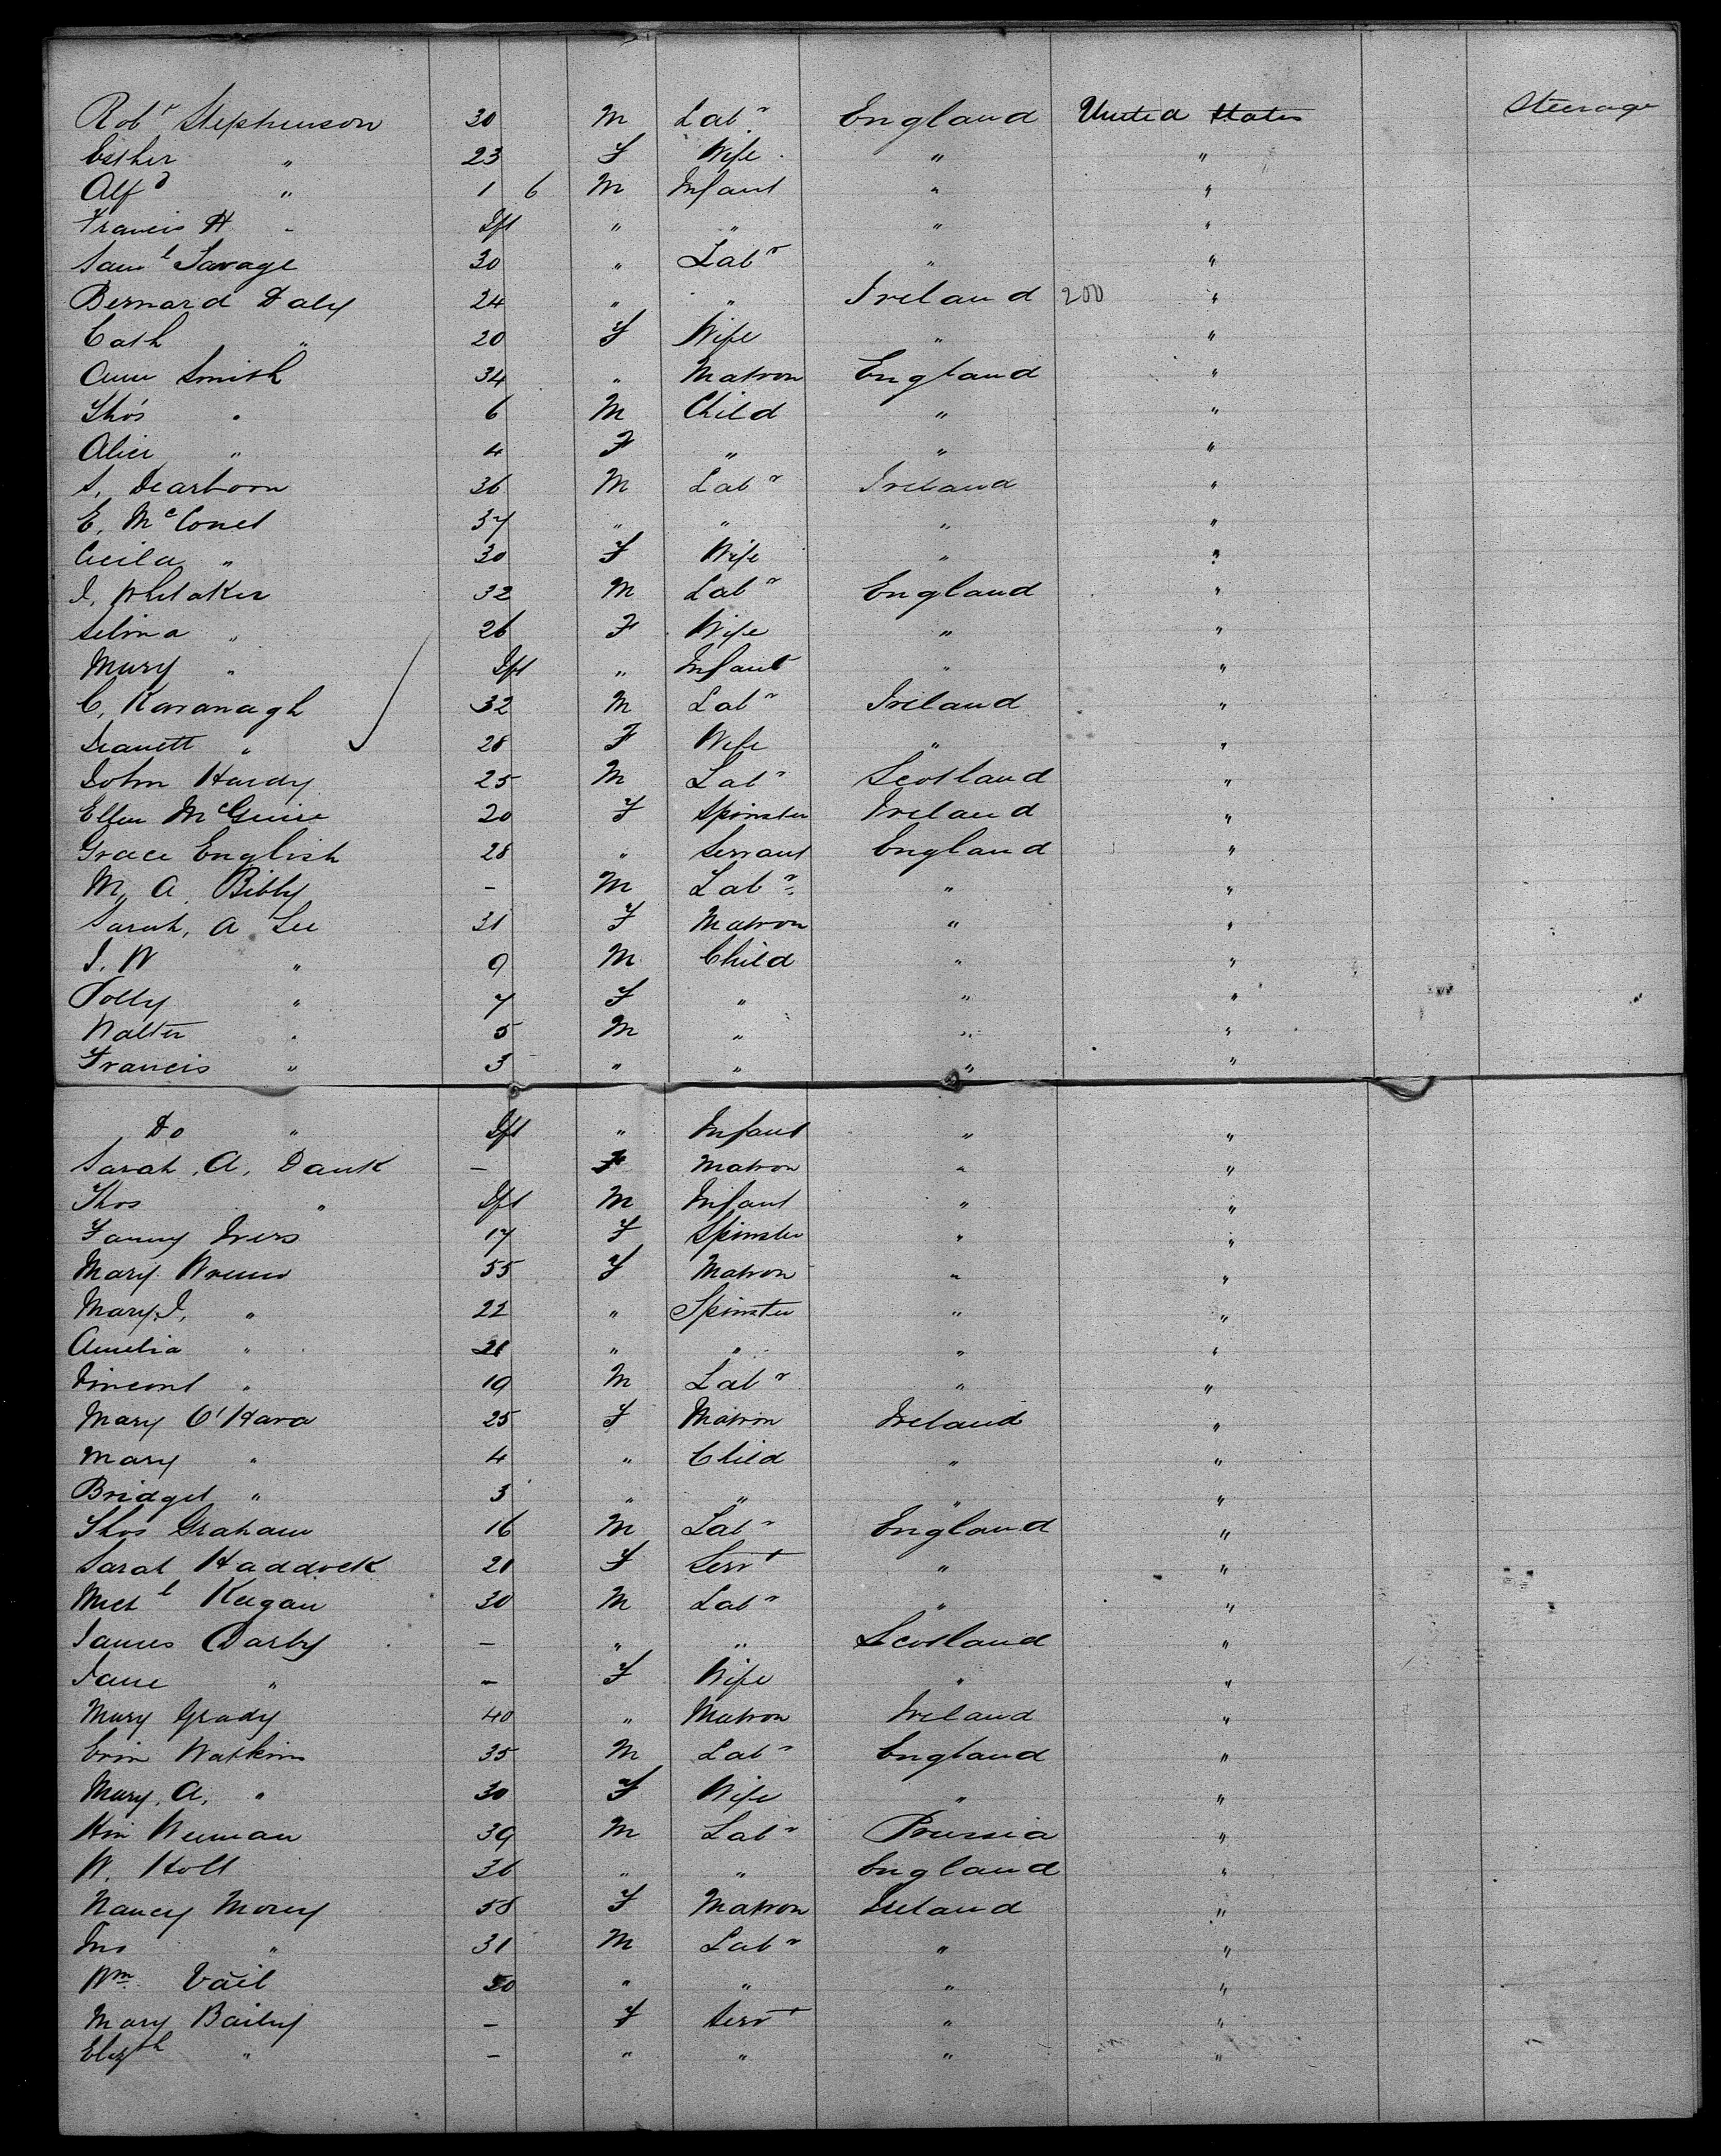 Robt Stephenson 30 M Labr England United States Steerage
Esther " 23 F Wife " "
Alfd " 1 6 M Infant " "
Francis H " Ift " " " "
Saml Savage 30 " Labr " "
Bernard Daly 24 " " Ireland 200 "
Cath " 20 F Wife " "
Ann Smith 34 " Matron England "
Thos " 6 M Child " "
Alice " 4 F " " "
S. Dearborn 36 M Labr Ireland "
E. McConel 37 " " " "
Cecila " 30 F Wife " "
J. Whitaker 32 M Labr England "
Selina " 26 F Wife " "
Mary " Ift " Infant " "
C. Kavanagh 32 M Labr Ireland "
Jeanett " 28 F Wife " "
John Hardy 25 M Labr Scotland "
Ellen McGuire 20 F Spinster Ireland "
Grace English 28 " Servant England "
M. A. Bibby - M Labr " "
Sarah, A Lee 31 F Matron " "
J. W " 9 M Child " "
Polly " 7 F " " "
Walter " 5 M " " "
Francis " 3 " " " "
Do " Ift " Infant " "
Sarah, A, Dank - F Matron " "
Thos " Ift M Infant " "
Fanny Ivers 17 F Spinster " "
Mary 55 F Matron " "
Mary J, " 22 " Spinster " "
Amelia " 21 " " " "
Vincent " 19 M Labr " "
Mary O'Hara 25 F Matron Ireland "
Mary " 4 " Child " "
Bridget " 3 " " " "
Thos Graham 16 M Labr England "
Sarah Haddock 21 F Servt " "
Michl Keegan 30 M Labr " "
James Darby - " " Scotland "
Jane " - F Wife " "
Mary Grady 40 " Matron Ireland "
Watkins 35 M Labr England "
Mary, A, " 30 F Wife " "
39 M Labr Prussia "
W. Holt 36 " " England "
Nancy Morey 58 F Matron Ireland "
Jno " 31 M Labr " "
Wm Vail 50 " " " "
Mary Baily - F Servt " "
Elizth " - " " " "